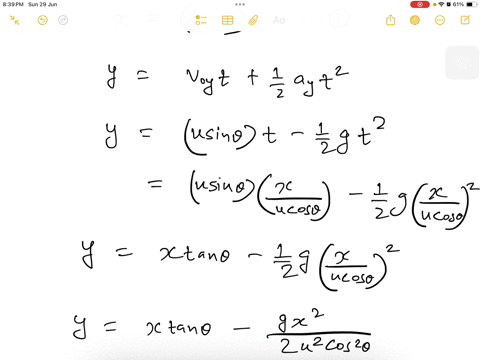 8:39 PM Sun 29 Jun 61%
Aa
y = v₀yt + 1/2 ayt²
y = (usinθ)t - 1/2 gt²
= (usinθ)(x/ucosθ) - 1/2 g(x/ucosθ)²
y = xtanθ - 1/2 g(x/ucosθ)²
y = xtanθ - gx²/2u²cos²θ